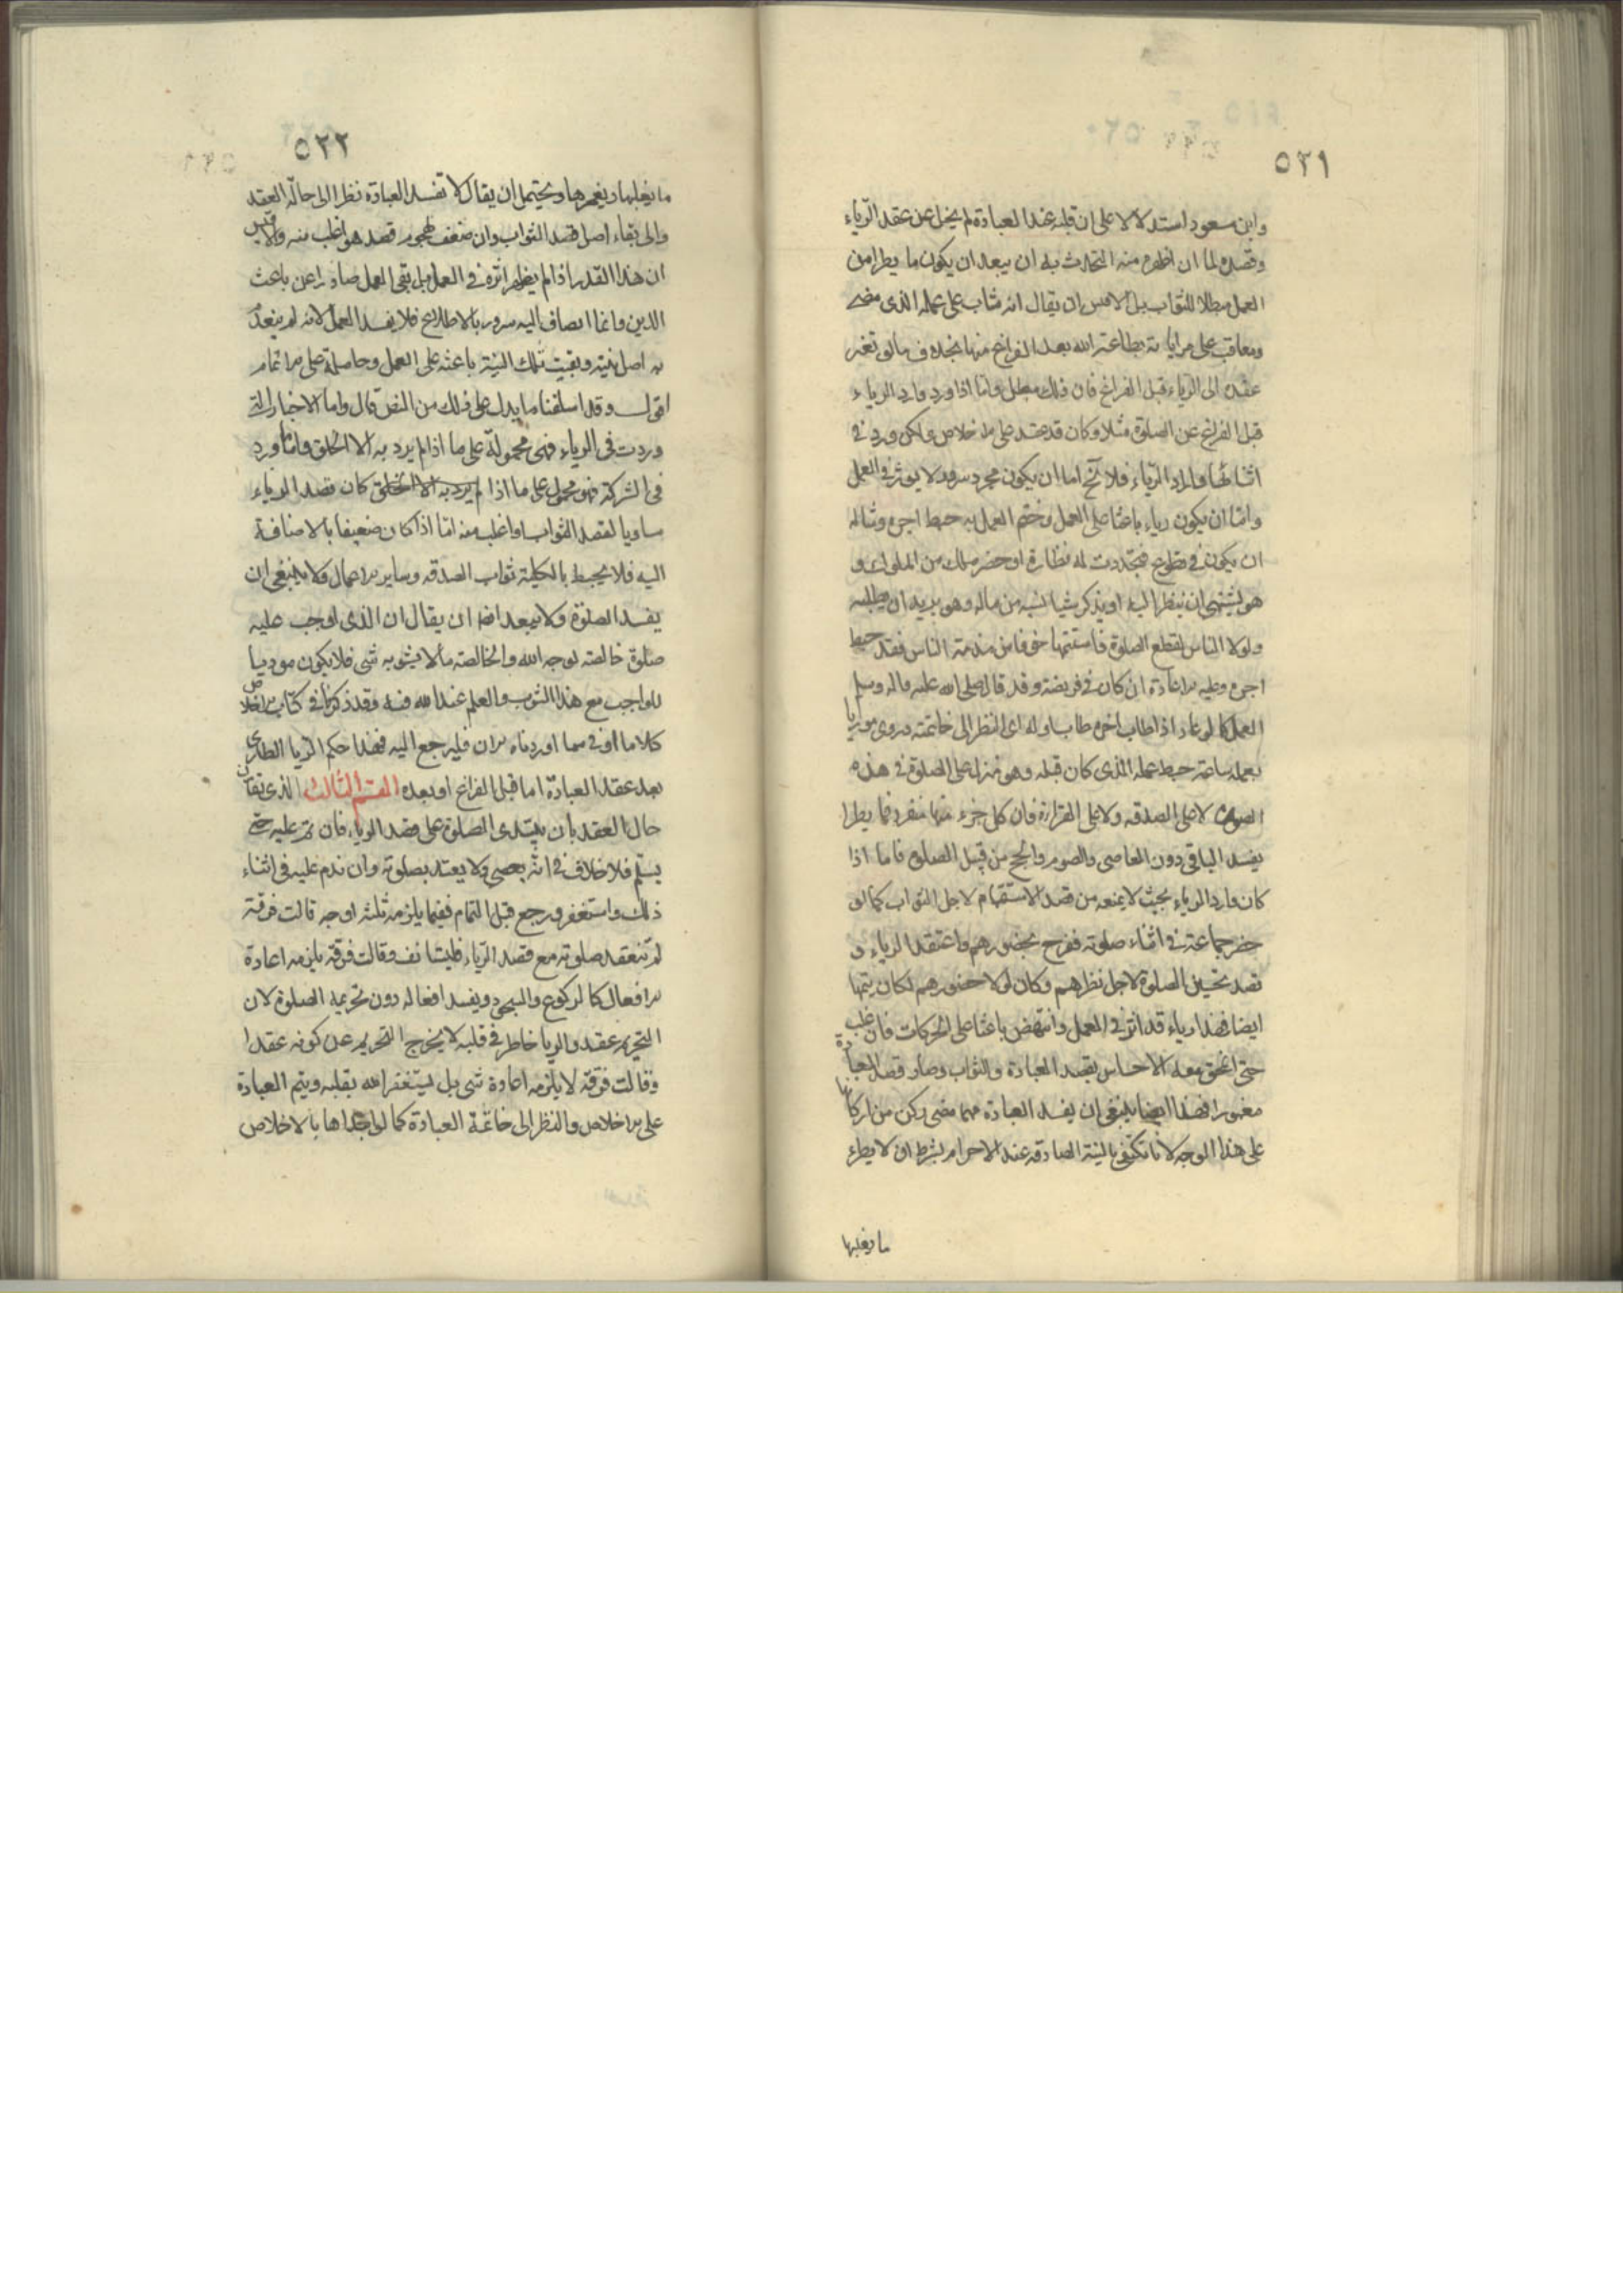 ٥٢١
وابن مسعود استدلالا على ان قلبه عند العبادة لم يخل عن عقد الرّياء
وقصده لما ان اظهر منه التحدث به اذ يبعد ان يكون ما يطرا من
العمل مبطلا للثواب بل الاقيس ان يقال انه مثاب على عمله الذى مضى
ومعاقب على مراياته بطاعة الله بعد الفراغ منها بخلاف ما لو تغير
عقده الى الرياء قبل الفراغ فان ذلك مبطل وامّا اذا ورد وارد الرياء
قبل الفراغ عن الصلوة مثلا وكان قد عقد على الاخلاص ولكن ورد فى
اثنائها وارد الرّياء فلا يخ اما ان يكون مجرد سرور لا يوثر فى العمل
وامّا ان يكون رياء باعثا على العمل وختم العمل به حبط اجره ومثاله
ان يكون فى تطوع فتجدّدت له نظارة او حضر ملك من الملوك و
هو يشتهى ان ينظر اليه او يذكر شيا نسيه من ماله وهو يريد ان يطلبه
ولولا الناس لقطع الصلوة فاستتمها خوفا من مذمة الناس فقد حبط
اجره وعليه الاعادة ان كان فى فريضة وقد قال صلى الله عليه واله وسلم
العمل كالوعاء اذا طاب اخره طاب اوله اى النظر الى خاتمته وروى من رايا
بعمله ساعة حبط عمله الذى كان قبله وهو منزل على الصلوة فى هذه
الصورة لا على الصدقه ولا على القراءة فان كل جزء منها منفرد فما يطرا
يفسد الباقى دون الماضى والصوم والحج من قبيل الصلوة فاما اذا
كان وارد الرياء بحيث لا يمنعه من قصد الاستتمام لاجل الثواب كما لو
حضر جماعة فى اثناء صلوته ففرح بحضورهم واعتقد الرياء و
قصد تحسين الصلوة لاجل نظرهم وكان لولا حضورهم لكان يتمها
ايضا فهذا رياء قد اثر فى العمل وانتهض باعثا على الحركات فان غلب
حتى انمحق معه الاحساس بقصد العبادة والثواب وصار قصد العبادة
مغمورا فهذا ايضا ينبغى ان يفسد العبادة مهما مضى ركن من اركانها
على هذا الوجه لانا نكتفى بالنية الصادقه عند الاحرام بشرط ان لا يطرء
ما يغلبها
٥٢٢
ما يغلبها ويغمرها ويحتمل ان يقال لا تفسد العبادة نظرا الى حالة العقد
والى بقاء اصل قصد الثواب وان ضعف بهجوم قصد هو اغلب منه والاقيس
ان هذا القدر اذا لم يظهر اثره فى العمل بل بقى العمل صادرا عن باعث
الدين وانما انضاف اليه سرور بالاطلاع فلا يفسد العمل لانه لم ينعد
به اصل نيته وبقيت تلك النية باعثة على العمل وحاملة على الاتمام
اقول وقد اسلفنا ما يدل على ذلك من النص قال واما الاخبار التى
وردت فى الرياء فهى محمولة على ما اذا لم يرد به الا الخلق واما ما ورد
فى الشركة فهو محمول على ما اذا لم يرد به الا الخلق كان قصد الرياء
مساويا لقصد الثواب او اغلب منه امّا اذا كان ضعيفا بالاضافة
اليه فلا يحبط بالكلية ثواب الصدقه وساير الاعمال ولا ينبغى ان
يفسد الصلوة ولا يبعد ايضا ان يقال ان الذى اوجب عليه
صلوة خالصة لوجه الله والخالصة ما لا يشوبه شى فلا يكون موديا
للواجب مع هذا الشوب والعلم عند الله فيه وقد ذكرنا فى كتاب الاخلاص
كلاما اوفى مما اوردناه الان فليرجع اليه فهذا حكم الريا الطارى
بعد عقد العبادة اما قبل الفراغ او بعده القسم الثالث الذى يقارن
حال العقد بأن يبتدى الصلوة على قصد الرياء فان تم عليه حتى
يسلّم فلا خلاف فى انّه يعصى ولا يعتد بصلوته وان ندم عليه فى اثناء
ذلك واستغفر ورجع قبل التمام ففيما يلزمه ثلثة اوجه قالت فرقة
لم تنعقد صلوته مع قصد الرّياء فليستانف وقالت فرقة يلزمه اعادة
الافعال كالركوع والسجود ويفسد افعاله دون تحريمة الصلوة لان
التحريم عقد والريا خاطر فى قلبه لا يخرج التحريم عن كونه عقدا
وقالت فرقة لا يلزمه اعادة شى بل يستغفر الله بقلبه ويتم العبادة
على الاخلاص والنظر الى خاتمة العبادة كما لو ابتداها بالاخلاص